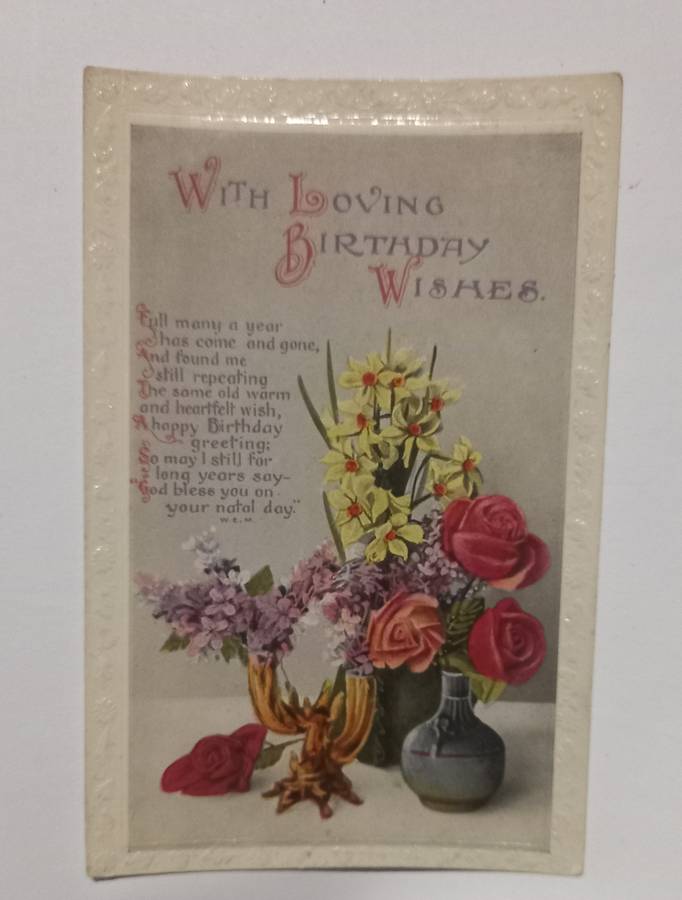 WITH LOVING
BIRTHDAY
WISHES.
Full many a year
has come and gone,
And found me
still repeating
The same old warm
and heartfelt wish,
A happy Birthday
greeting;
So may I still for
long years say—
"God bless you on
your natal day."
W.E.M.